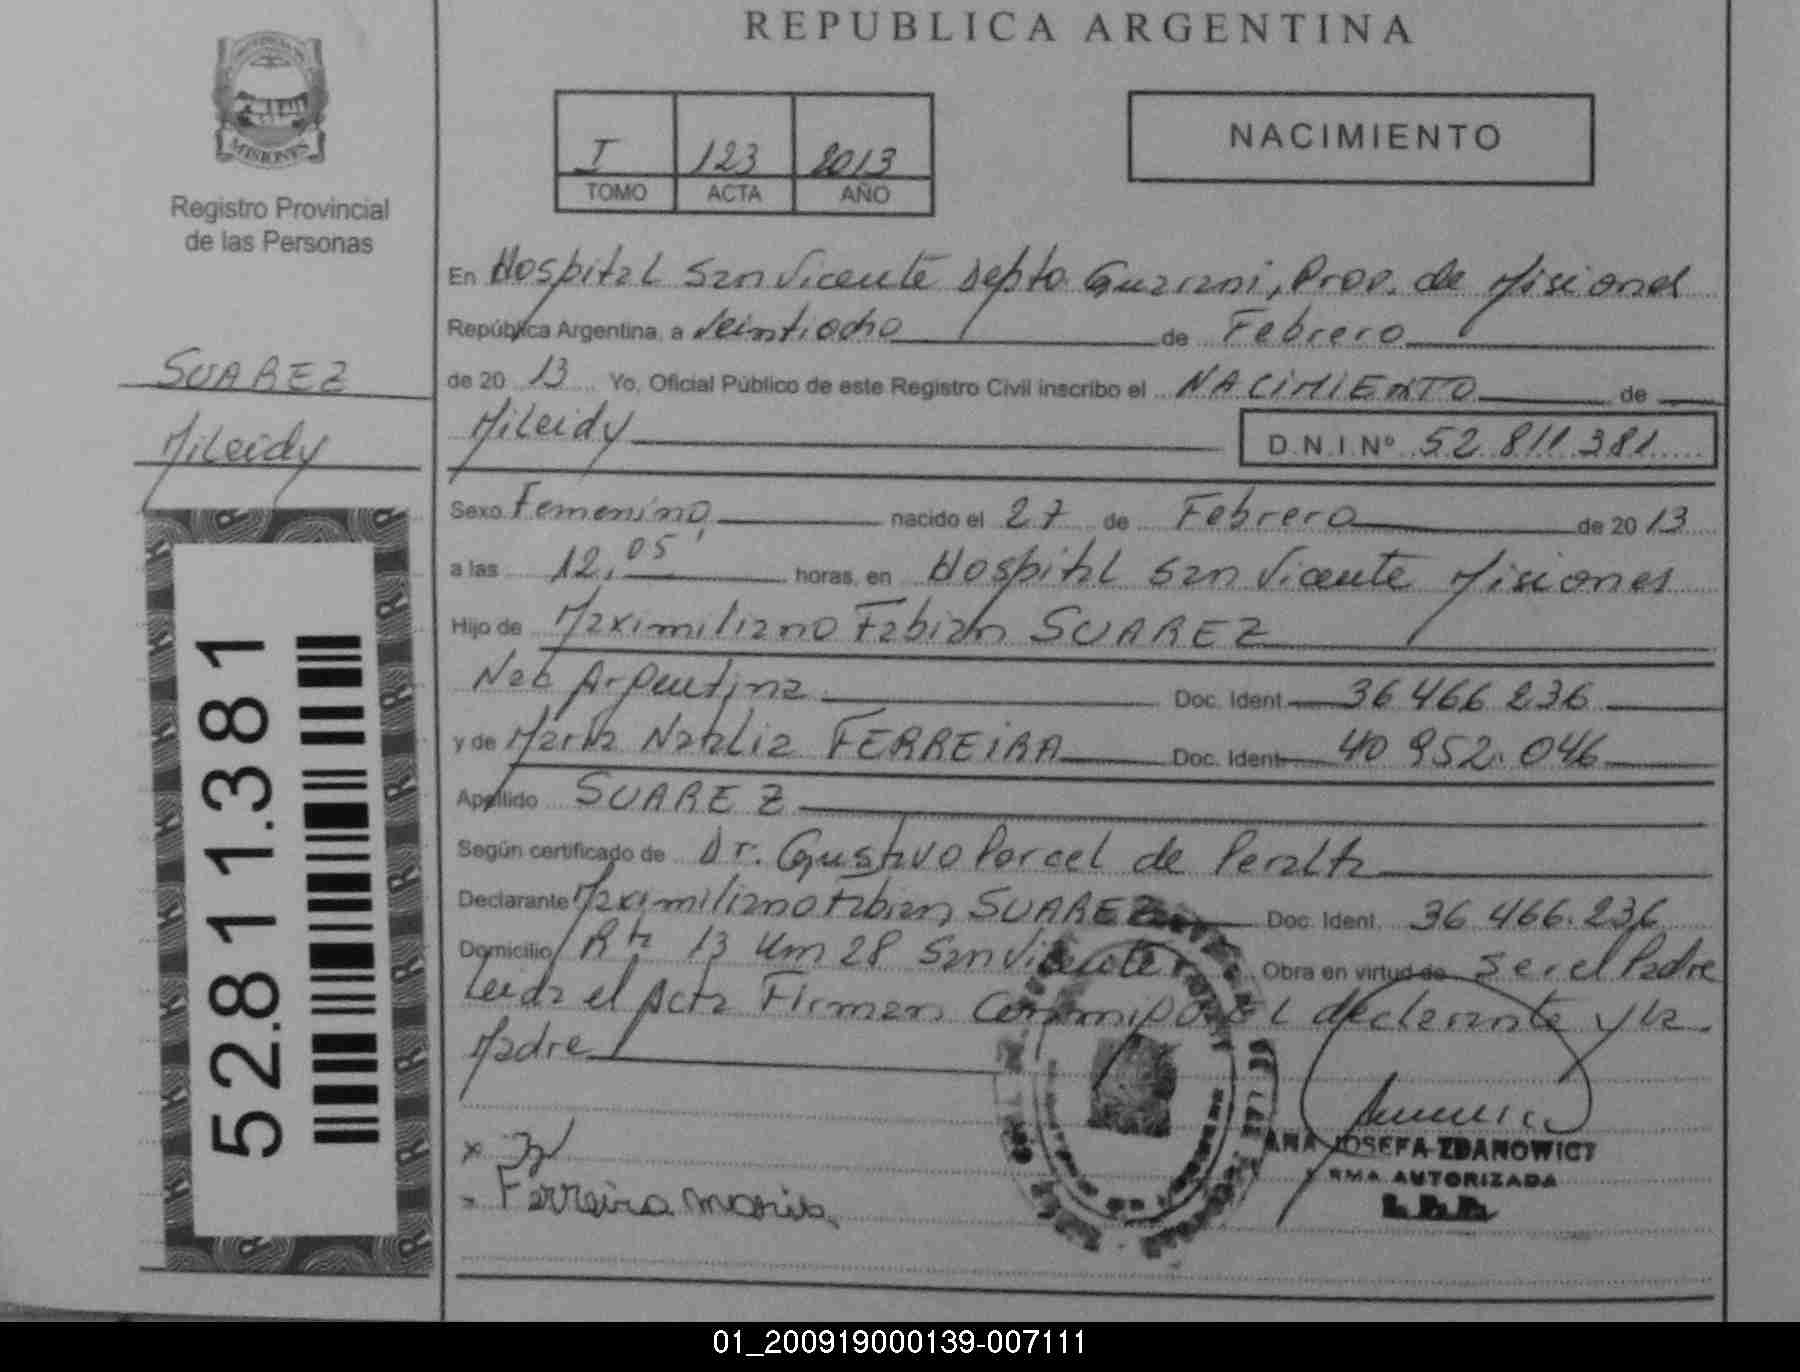 REPUBLICA ARGENTINA
MISIONES
Registro Provincial
de las Personas
I 123 2013
TOMO ACTA AÑO
NACIMIENTO
SUAREZ
Mileidy
52.811.381
En Hospital San Vicente Depto Guarani, Prov. de Misiones
República Argentina, a Veintiocho de Febrero
de 20 13 Yo, Oficial Público de este Registro Civil inscribo el NACIMIENTO de
Mileidy D.N.I.Nº 52.811.381
Sexo Femenino nacido el 27 de Febrero de 20 13
a las 12,05 horas, en Hospital San Vicente Misiones
Hijo de Maximiliano Fabian SUAREZ
Nac Argentina Doc. Ident. 36 466 236
y de Maria Natalia FERREIRA Doc. Ident. 40 952.046
Apellido SUAREZ
Según certificado de Dr. Gustavo Porcel de Peralta
Declarante Maximiliano Fabian SUAREZ Doc. Ident. 36 466.236
Domicilio Rta 13 Km 28 San Vicente Obra en virtud de Ser el Padre
Leida el Acta Firman Conmigo El declarante y la
Madre
x
Ferreira Maria
ANA JOSEFA ZDANOWICZ
FIRMA AUTORIZADA
01_200919000139-007111